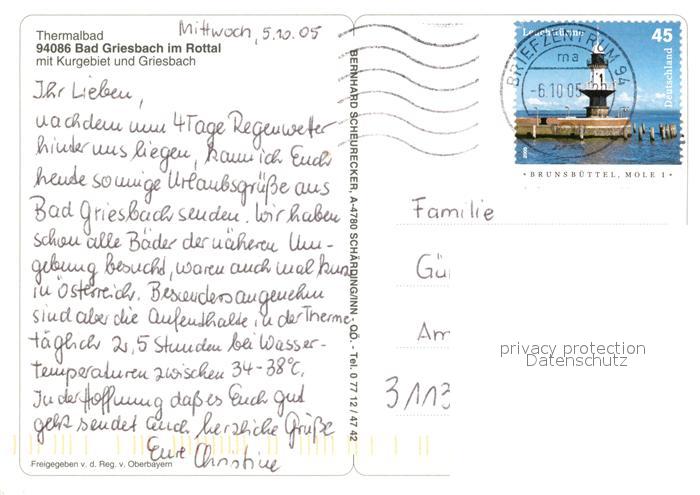 Thermalbad
94086 Bad Griesbach im Rottal
mit Kurgebiet und Griesbach
Mittwoch, 5.10.05
Ihr Lieben,
nachdem nun 4 Tage Regenwetter
hinter uns liegen, kann ich Euch
heute sonnige Urlaubsgrüße aus
Bad Griesbach senden. Wir haben
schon alle Bäder der näheren Um-
gebung besucht, waren auch mal kurz
in Österreich. Besonders angenehm
sind aber die Aufenthalte in der Therme
täglich 2,5 Stunden bei Wasser-
temperaturen zwischen 34-38°C.
In der Hoffnung daß es Euch gut
geht sendet auch herzliche Grüße
Eure Christine
Freigegeben v. d. Reg. v. Oberbayern
BERNHARD SCHEURECKER, A-4780 SCHÄRDING/INN · OÖ. - Tel. 0 77 12 / 47 42
BRIEFZENTRUM 94
ma
-6.10.05
Leuchttürme
45
Deutschland
2005
· BRUNSBÜTTEL, MOLE 1 ·
Familie
Gü
Am
3113
privacy protection
Datenschutz